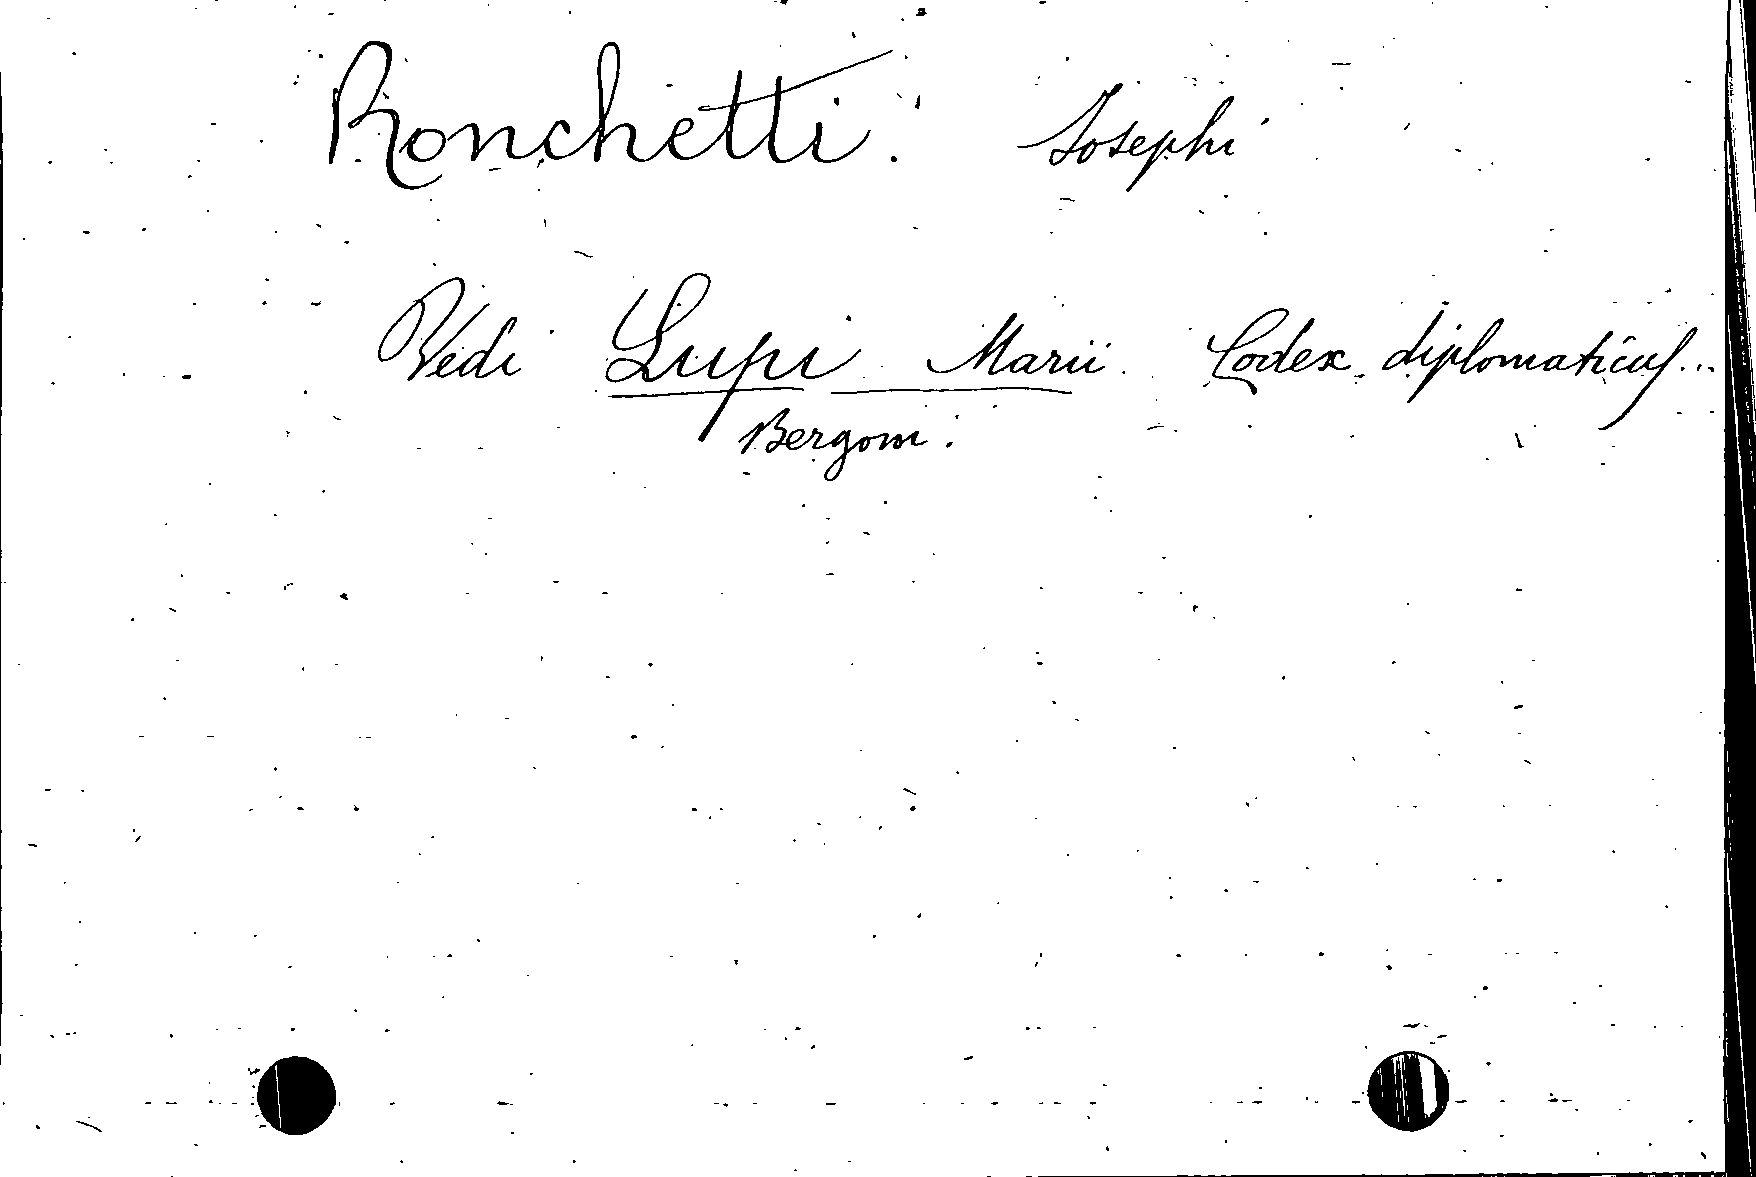 Ronchetti. Josephi
Vedi Lupi Marii. Codex diplomaticus...
Bergom.